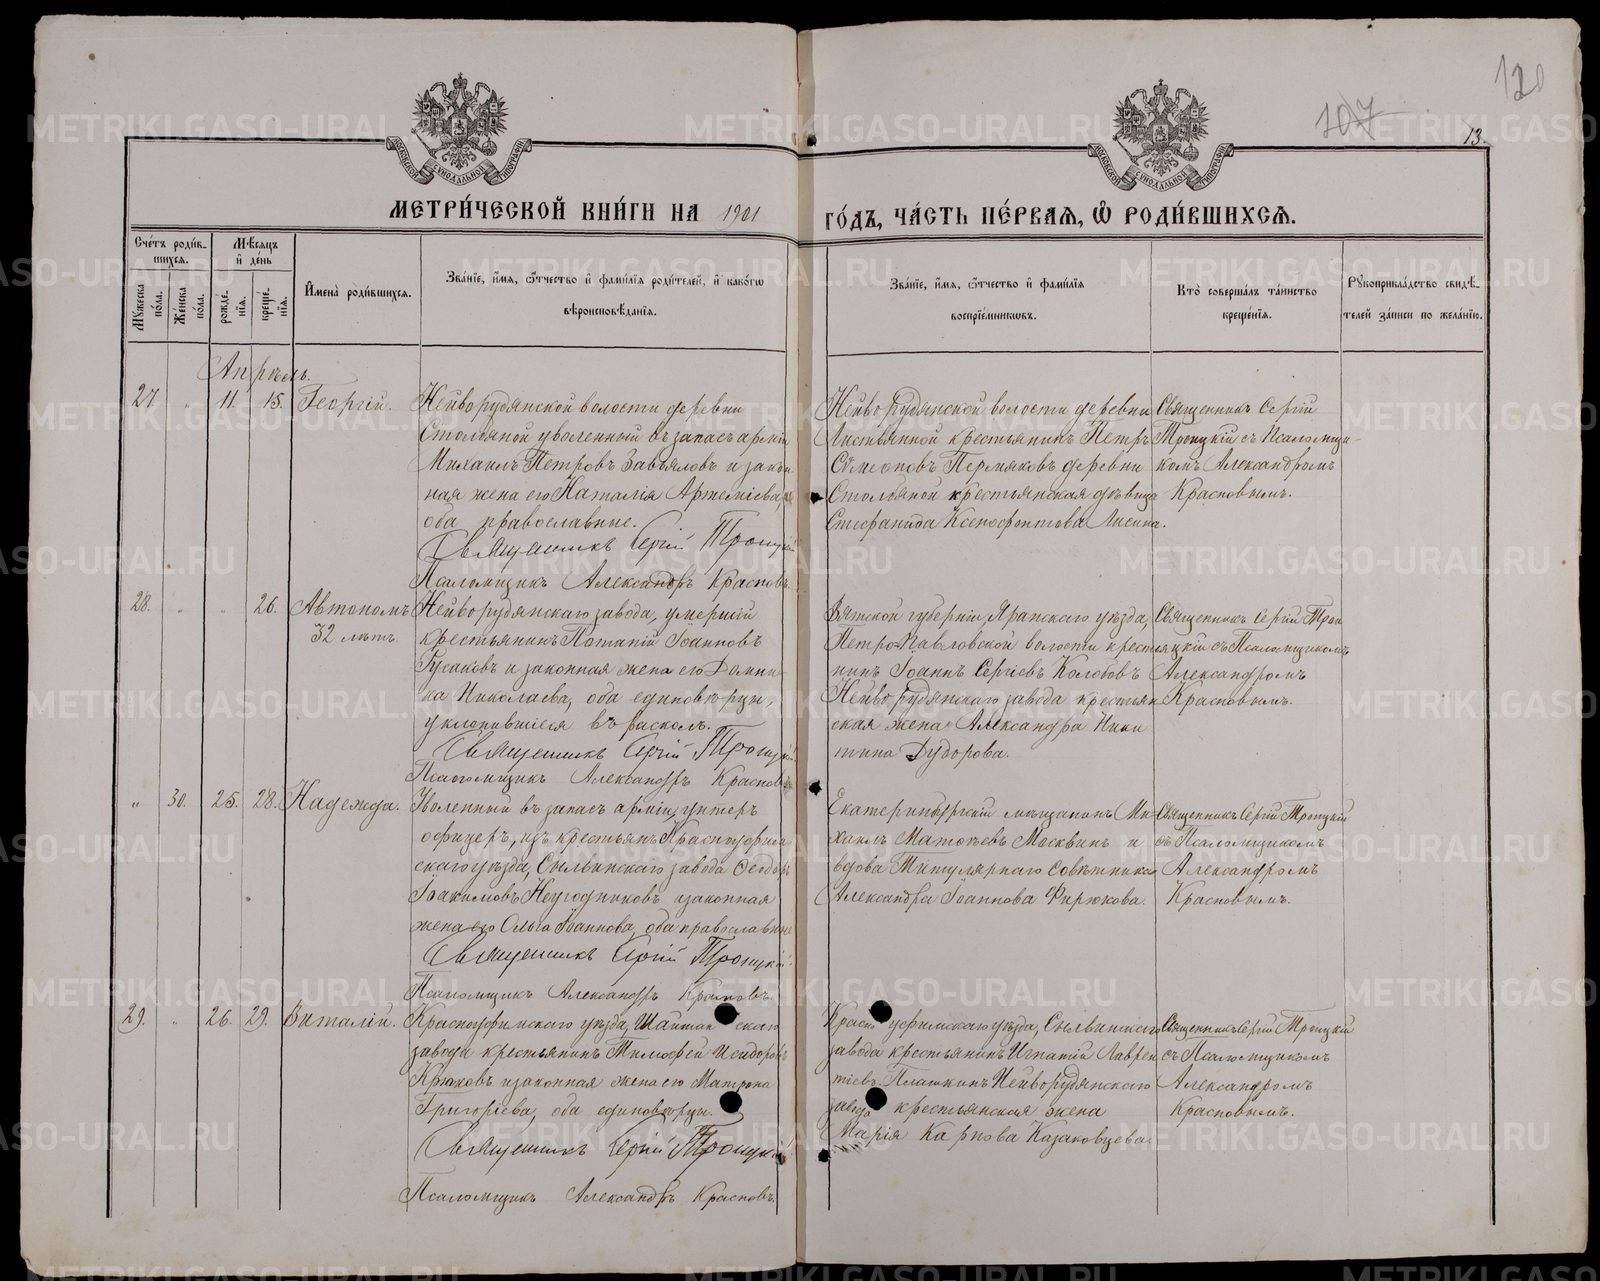 120
107
13.
МОСКОВСКОЙ СУНОДАЛЬНОЙ ТИПОГРАФІИ
МОСКОВСКОЙ СУНОДАЛЬНОЙ ТИПОГРАФІИ
МЕТРИ́ЧЕСКОЙ КНИ́ГИ НА 1901 ГО́ДЪ, ЧА́СТЬ ПЕ́РВАЯ, Ѽ РОДИ́ВШИХСЯ.
Сче́тъ роди́вшихся.
Мѣ́сяцъ и де́нь
Мꙋжеска по́ла.
Же́нска по́ла.
рожде́нїя.
креще́нїя.
Имена̀ роди́вшихся.
Зва́нїе, и́мя, ѻ́тчество и фами́лїя роди́телей, и како́гѡ вѣроисповѣ́данїя.
Зва́нїе, и́мя, ѻ́тчество и фами́лїя воспрїе́мникѡвъ.
Кто̀ соверша́лъ та́инство креще́нїя.
Рꙋкоприкла́дство свидѣ́телей за́писи по жела́нїю.
Апрѣль.
27 „ 11. 15. Георгій.
Нейворудянской волости деревни
Столбяной уволенный въ запасъ арміи
Михаилъ Петровъ Завьяловъ и закон
ная жена его Наталія Артеміева,
оба православные.
Священникъ Сергій Троицкій
Псаломщикъ Александръ Красновъ
Нейворудянской волости деревни
Листвянной крестьянинъ Петръ
Сѵмеоновъ Пермяковъ деревни
Столбяной крестьянская дѣвица
Стефанида Ксенофонтова Лисина.
Священникъ Сергій
Троицкій съ Псаломщи-
комъ Александромъ
Красновымъ.
28. „ „ 26. Автономъ
32 лѣтъ.
Нейворудянскаго завода, умершій
крестьянинъ Потапій Іоанновъ
Гусаковъ и законная жена его Домни
ка Николаева, оба единовѣрцы,
уклонившіеся въ расколъ.
Священникъ Сергій Троицкій
Псаломщикъ Александръ Красновъ
Вятской губерніи, Яранскаго уѣзда,
Петро-Павловской волости крестья
нинъ Іоаннъ Сергіевъ Колобовъ
Нейворудянскаго завода крестьян
ская жена Александра Ники
тина Дудорова.
Священникъ Сергій Трои
цкій съ Псаломщикомъ
Александромъ
Красновымъ.
„ 30. 25. 28. Надежда.
Уволенный въ запасъ арміи, унтеръ
офицеръ, изъ крестьянъ Красноуфим
скаго уѣзда, Сылвинскаго завода Ѳеодоръ
Іоакимовъ Неугодниковъ и законная
жена его Ольга Іоаннова, оба православные
Священникъ Сергій Троицкій
Псаломщикъ Александръ Красновъ.
Екатеринбургскій мѣщанинъ Ми-
хаилъ Матѳеевъ Москвинъ и
вдова Титулярнаго Совѣтника
Александра Іоаннова Фирюкова.
Священникъ Сергій Троицкій
съ Псаломщикомъ
Александромъ
Красновымъ.
29. „ 26. 29. Виталій.
Красноуфимскаго уѣзда, Шайтанскаго
завода крестьянинъ Тимофей Исидоровъ
Крюковъ и законная жена его Матрона
Григоріева, оба единовѣрцы.
Священникъ Сергій Троицкій
Псаломщикъ Александръ Красновъ.
Красноуфимскаго уѣзда, Сылвинскаго
завода крестьянинъ Игнатій Лаврен
тіевъ Плашкинъ Нейворудянскаго
завода крестьянская жена
Марія Карпова Казаковцева.
Священникъ Сергій Троицкій
съ Псаломщикомъ
Александромъ
Красновымъ.
METRIKI.GASO-URAL.RU